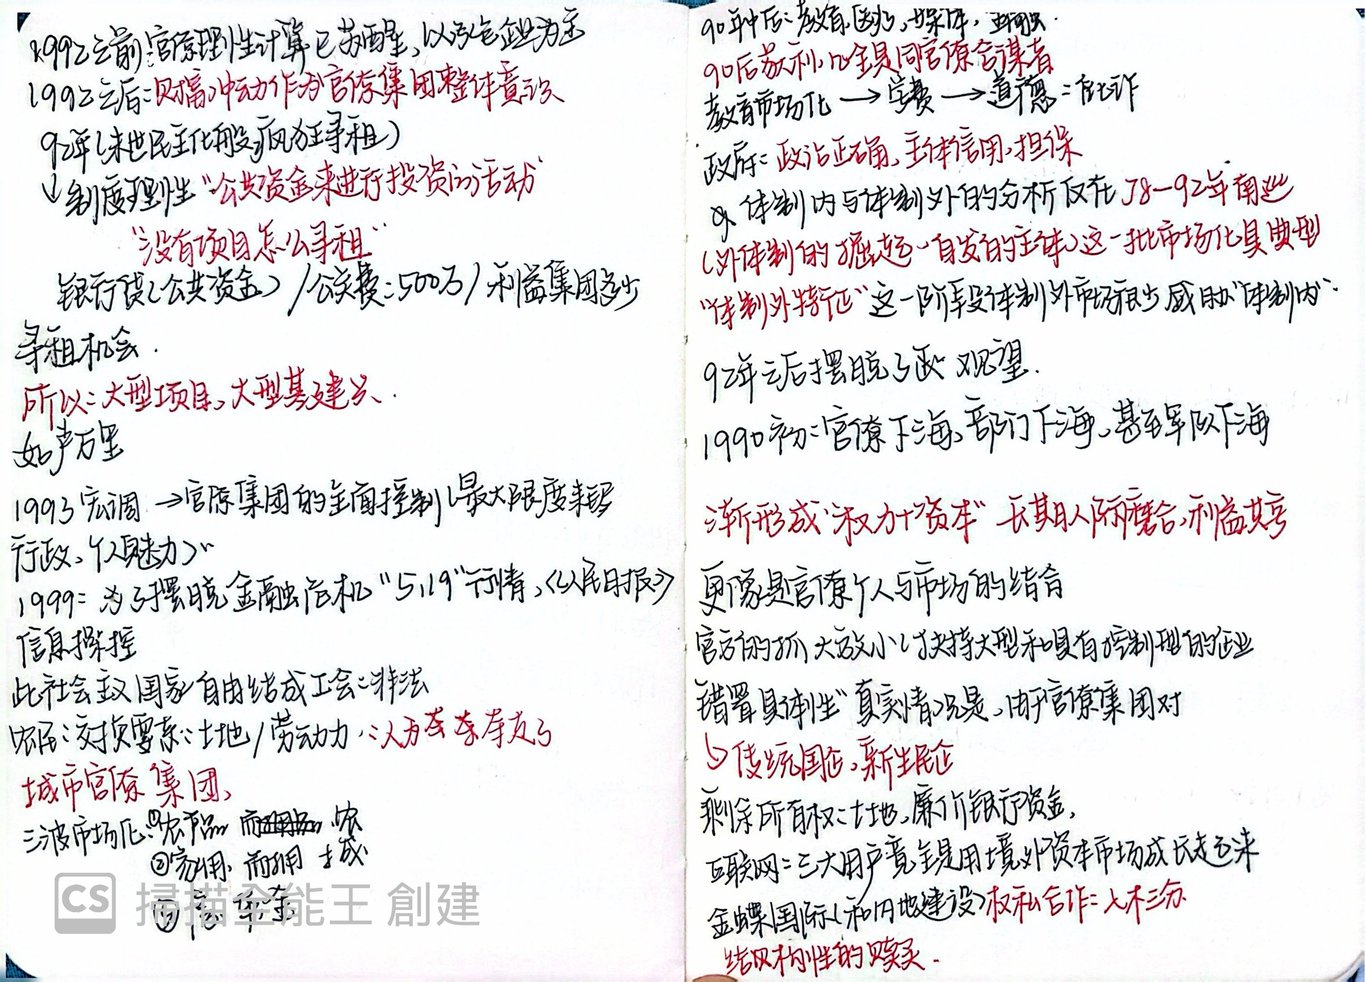 1992之前:官僚理性计算已苏醒,以承包企业为主
1992之后:财富冲动作为官僚集团整体意识
92年(末世民主化般疯狂寻租)
↓制度理性"公共资金来进行投资的活动"
"没有项目怎么寻租"
银行贷(公共资金)/公关费:500万/利益集团多少
寻租机会.
所以:大型项目,大型基建等.
如声万里
1993宏调→官僚集团的全面控制(最大限度来
行政、个人魅力)
1999:为了摆脱金融危机"5,19"行情,《人民日报》
信息操控
此社会主义国家自由结成工会:非法
农民:交换要素:土地/劳动力.:认为
城市官僚集团,
三波市场化:①农产品
②家用
③
90年中后:教育,医疗,媒体,金融.
90后教利,完全是同官僚合谋者
教育市场化→学费→道德:欺诈
政府:政治正确,主体信用,担保
体制内与体制外的分析仅在78-92年有些
(外体制的崛起-自发的主体)这一批市场化具典型
"体制外特征"这一阶段体制外市场很少威胁"体制内".
92年之后摆脱了政观望.
1990初:官僚下海,部门下海,甚至军队下海
渐形成"权力+资本"长期人际磨合,利益共享
更像是官僚个人与市场的结合
官方的抓大放小(扶持大型和具有控制型的企业
错置具体性"真实情况是,由于官僚集团对
↳传统国企,新生民企
剩余所有权:土地,廉价银行资金,
互联网:三大用户竟全是用境外资本市场成长起来
金蝶国际(和内地建设)权私合作:七木三分
结构性的赎买.
掃描全能王 創建